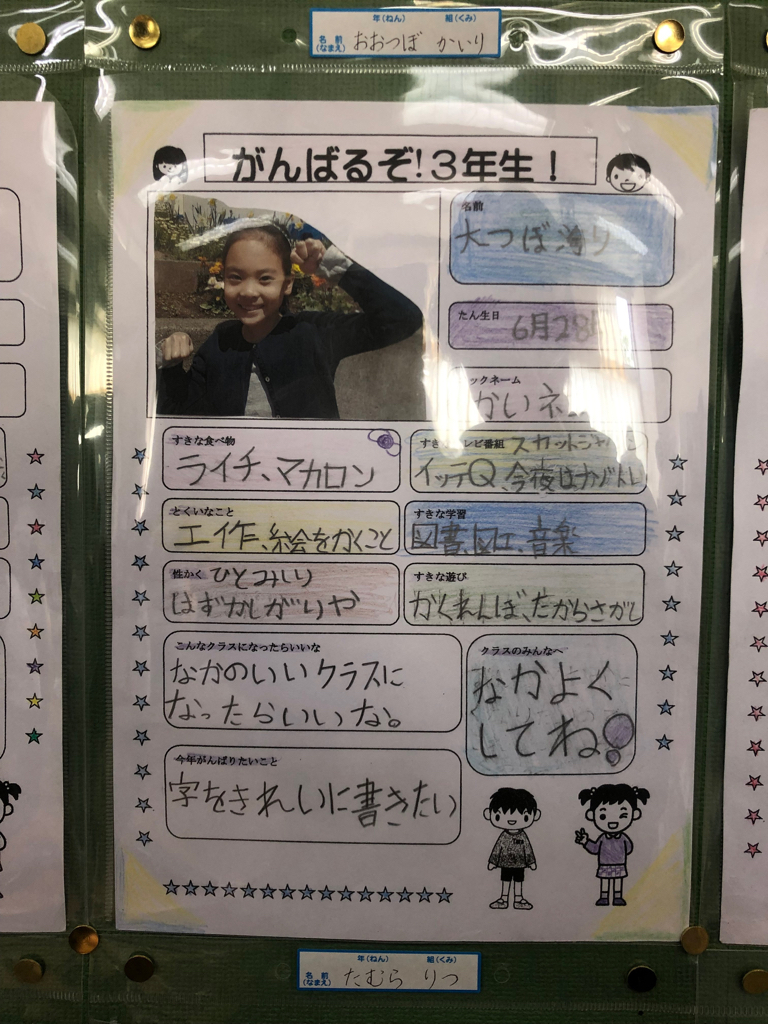 年(ねん) 組(くみ)
名前(なまえ) おおつぼ かいり
がんばるぞ!3年生!
名前
大つぼ 海り
たん生日
6月28
ックネーム
かいネ
すきな食べ物
ライチ、マカロン
すき レビ番組 スカットジャ
イッテQ 今夜はナゾトレ
とくいなこと
工作、絵をかくこと
すきな学習
図書、図工、音楽
性かく ひとみしり
はずかしがりや
すきな遊び
かくれんぼ、たからさがし
こんなクラスになったらいいな
なかのいいクラスに
なったらいいな。
クラスのみんなへ
なかよく
してね!
今年がんばりたいこと
字をきれいに書きたい
年(ねん) 組(くみ)
名前(なまえ) たむら りつ